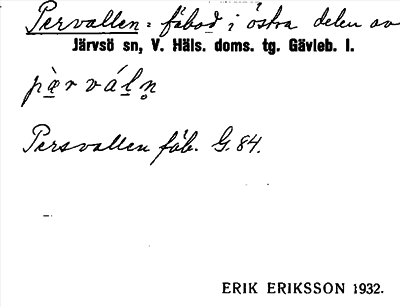 Pervallen = fäbod i östra delen av
Järvsö sn, V. Häls. doms. tg. Gävleb. l.
pæ̀rváḷn̥
Persvallen fäb. G. 84.
ERIK ERIKSSON 1932.